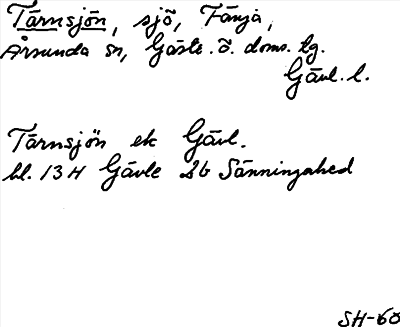 Tärnsjön, sjö, Färja,
Årsunda sn, Gästr. ö. doms. tg.
Gävl. l.
Tärnsjön ek Gävl.
bl. 13 H Gävle 2b Sänningahed
SH-60